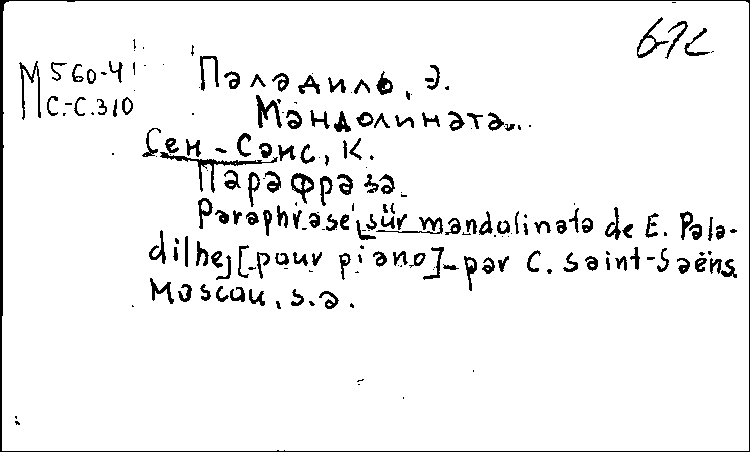 М 560-4
С.-С.310
Паладиль, Э.
Мандолината.
Сен-Санс, К.
Парафраза.
Paraphrase sür mandolinata de E. Pala-
dilhe [pour piano] par C. Saint-Saëns.
Moscou, s.a.